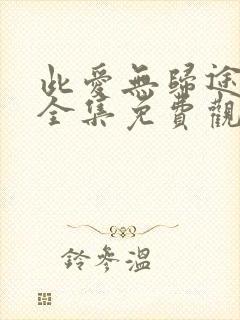 此愛無歸途
全集免費觀
鈴參溫